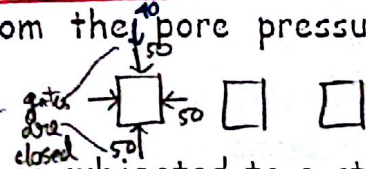 om the pore pressu
40
50
gates
are
closed
50
50
subjected to a st